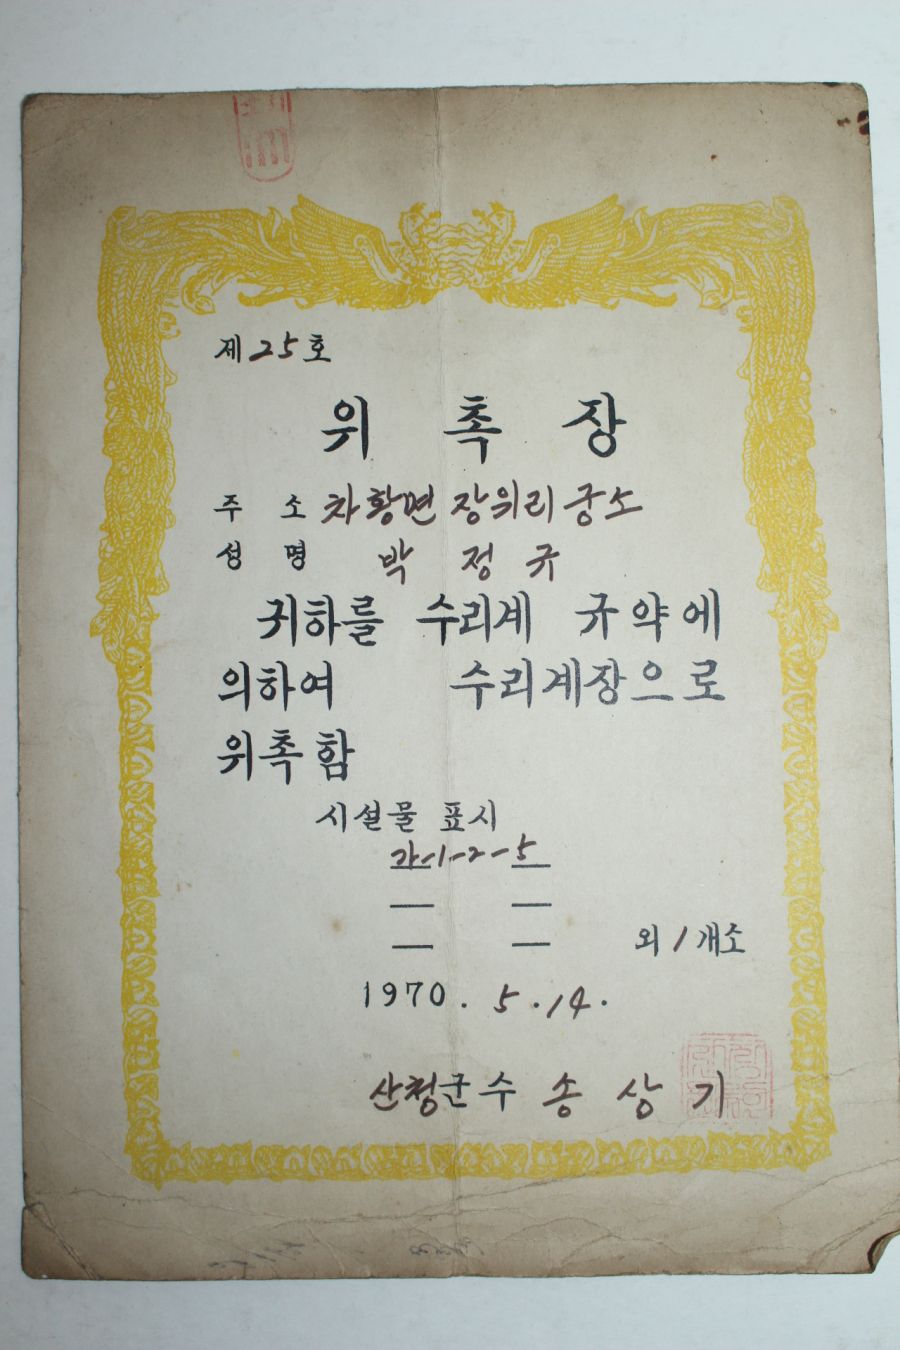 제 25 호
위 촉 장
주 소 차황면 장위리 궁소
성 명 박 정 규
귀하를 수리계 규약에
의하여 수리계장으로
위촉함
시설물 표시
가-1-2-5
외 1 개소
1970. 5. 14.
산청군수 송 상 기